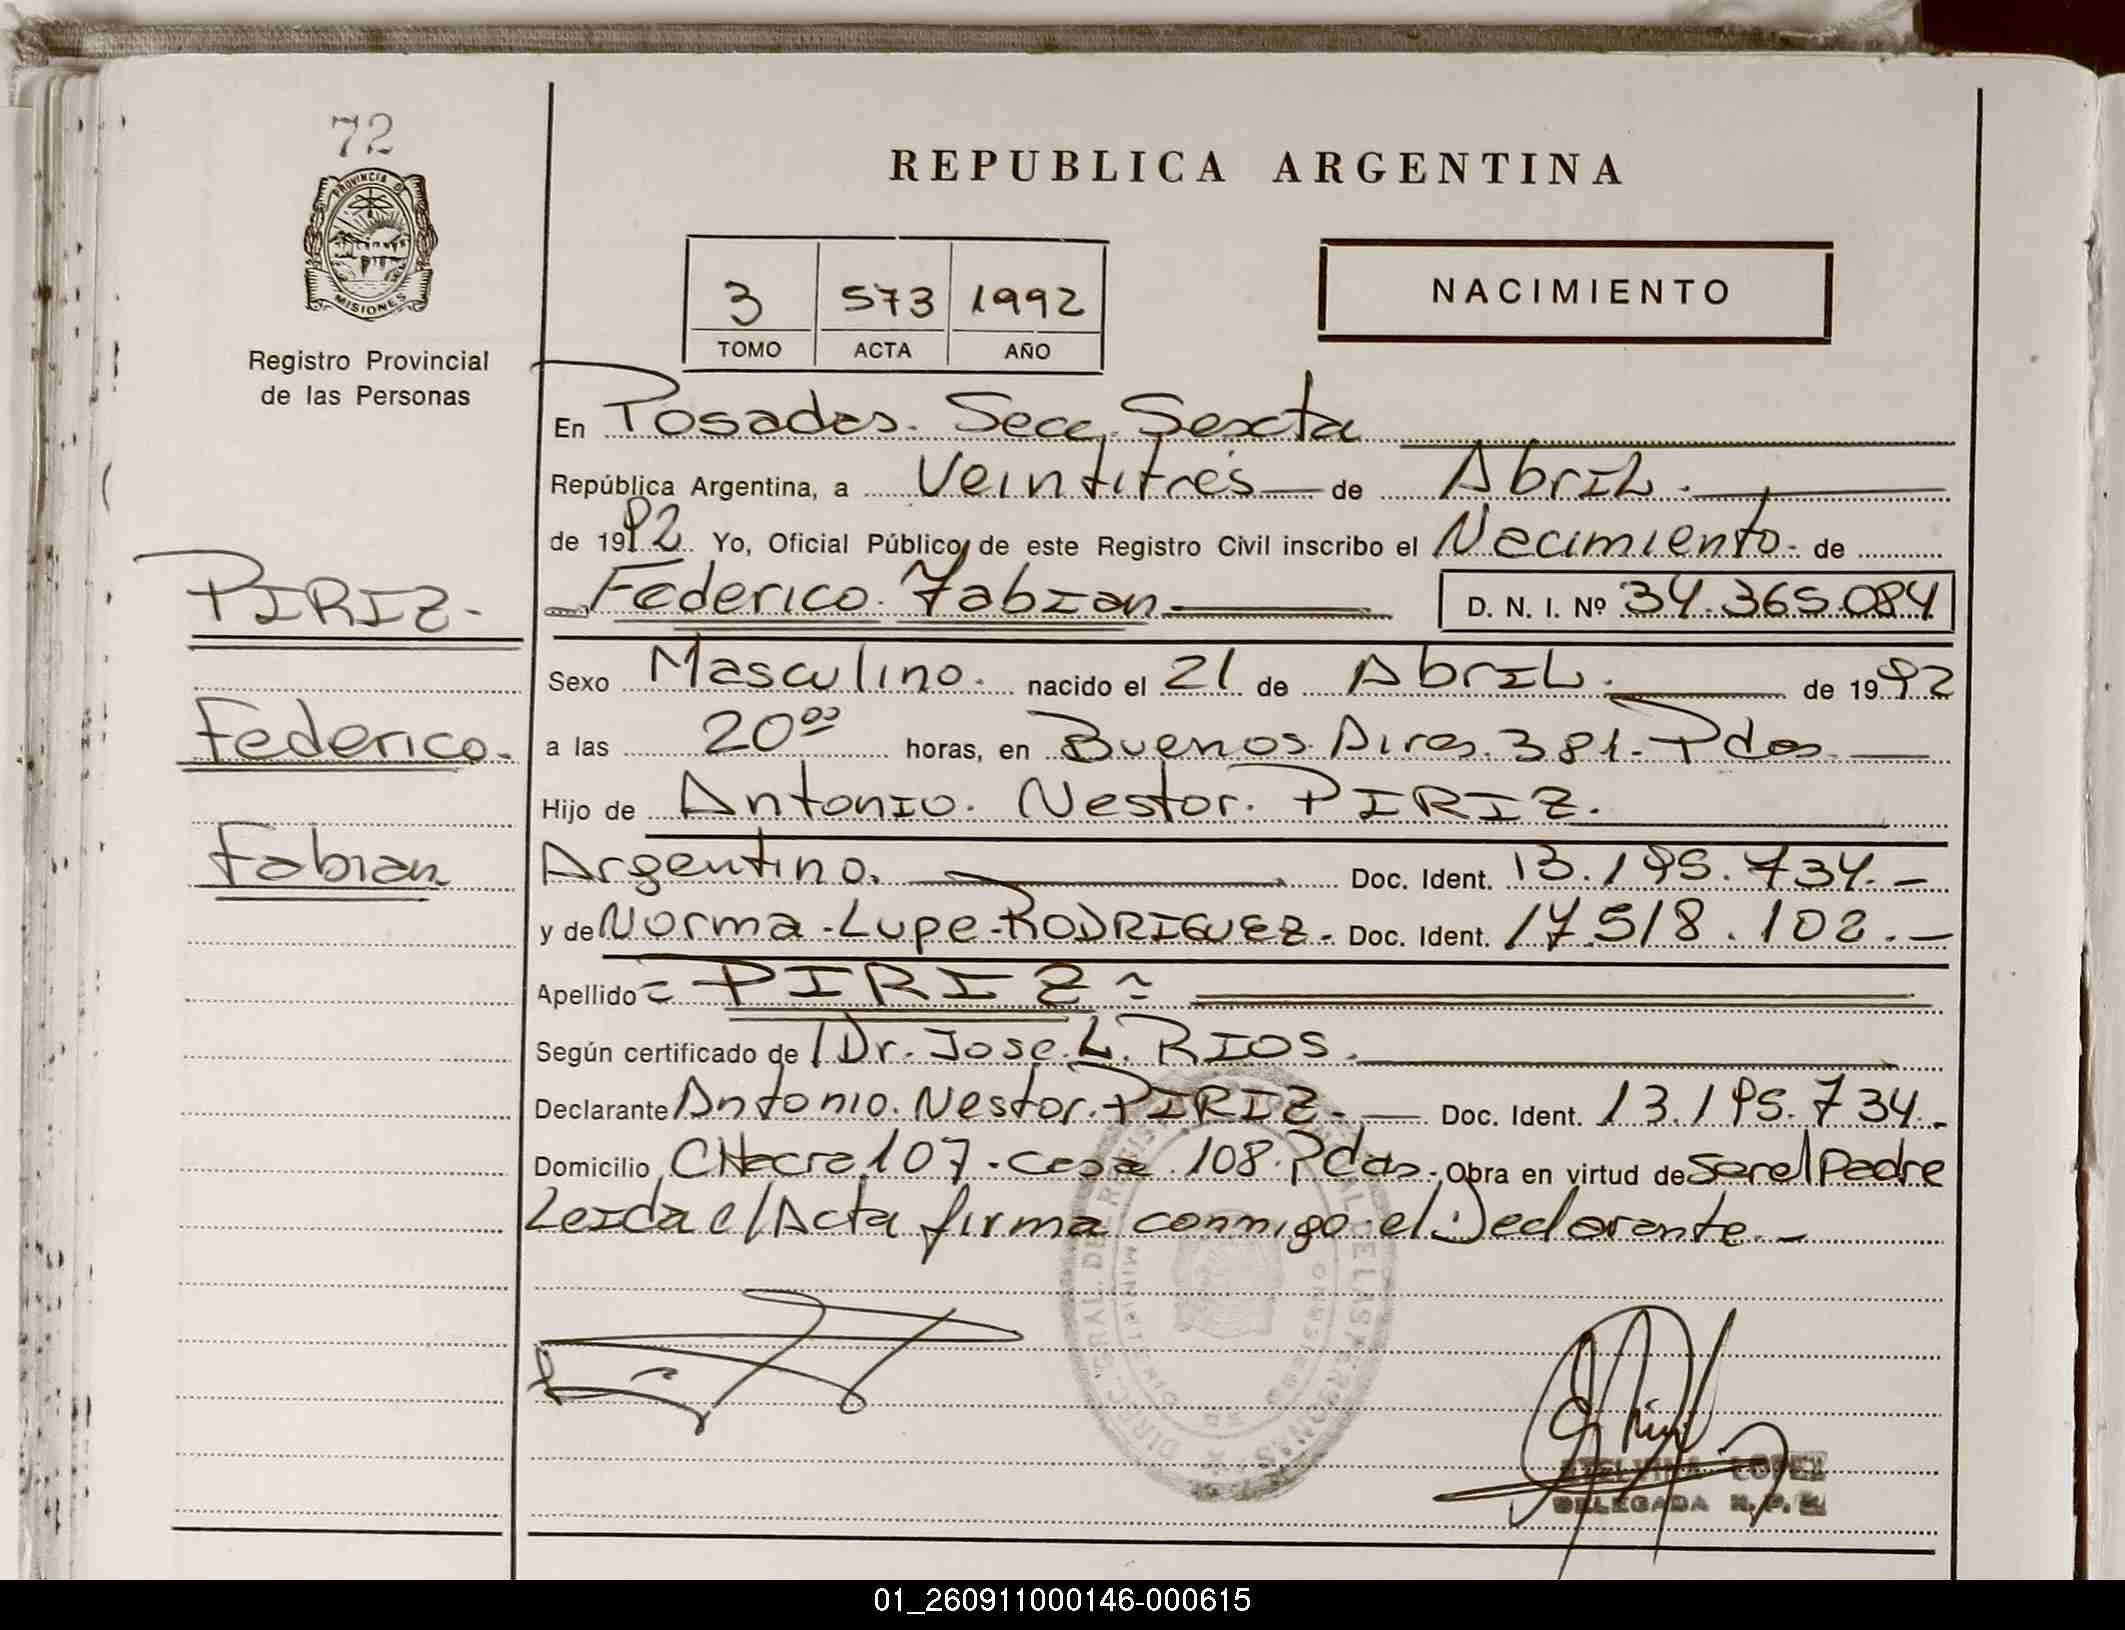 72
PROVINCIA DE
MISIONES
Registro Provincial
de las Personas
PIRIZ-
Federico.
Fabian
REPUBLICA ARGENTINA
3 573 1992
TOMO ACTA AÑO
NACIMIENTO
En Posadas. Secc. Sexta
República Argentina, a Veintitrés de Abril.
de 1992 Yo, Oficial Público de este Registro Civil inscribo el Nacimiento. de
Federico. Fabian D. N. I. Nº 34.365.084
Sexo Masculino. nacido el 21 de Abril. de 1992
a las 20⁰⁰ horas, en Buenos Aires. 381. Pdas.
Hijo de Antonio. Nestor. PIRIZ.
Argentino. Doc. Ident. 13.195.734.-
y de Norma-Lupe-RODRIGUEZ- Doc. Ident. 17.518.102.-
Apellido = PIRIZ =
Según certificado de Dr. Jose. L. RIOS.
Declarante Antonio. Nestor. PIRIZ.- Doc. Ident. 13.195.734.-
Domicilio CHacra 107.casa.108.Pdas. Obra en virtud de ser el Padre
Leida e/Acta firma conmigo el Declarante.-
DIREC. GRAL. DEL REGIST PERSONAS
LOPEZ
DELEGADA R.P.P.
01_260911000146-000615